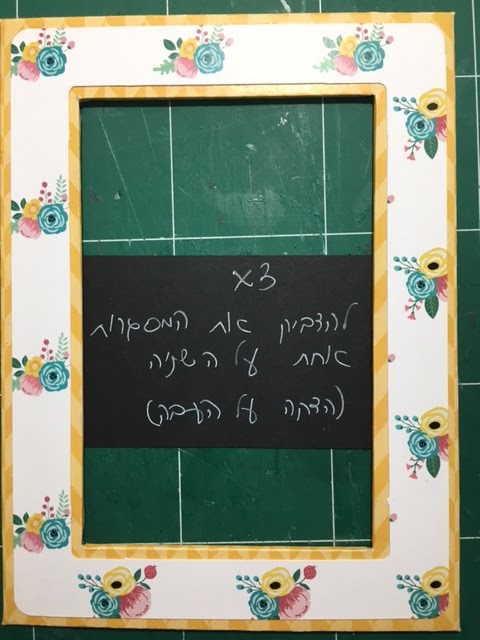 x3
להדביק את המסגרות
אחת על השניה
(הדקה על העבה)